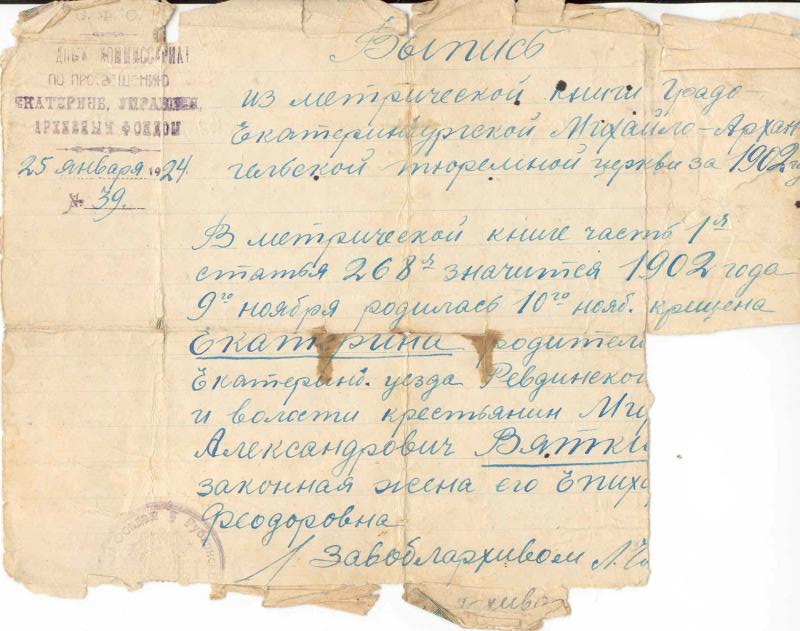 С. Ф. С.
КОМИССАРИАТ
ПО ПРОСВЕЩЕНИЮ
ЕКАТЕРИНБ. УПРАВЛЕН.
АРХИВНЫМ ФОНДОМ
25 января 1924
№ 39.
Выпись
из метрической книги Градо-
Екатеринбургской Михайло-Архан
гельской тюремной церкви за 1902 го
В метрической книге часть 1я
статья 268я значится 1902 года
9го ноября родилась 10го нояб. крещена
Екатерина родители
Екатеринб. уезда Ревдинског
и волости крестьянин Ми
Александрович Вятки
законная жена его Епих
Феодоровна
Завоблархивом